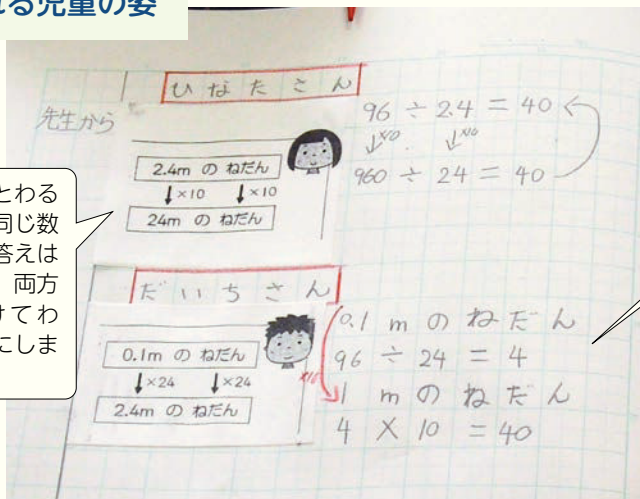 れる児童の姿
ひなたさん
先生から
2.4m の ねだん
↓×10 ↓×10
24m の ねだん
96 ÷ 2.4 = 40
↓×10 ↓×10
960 ÷ 24 = 40
とわる
同じ数
答えは
両方
けてわ
にしま
だいちさん
0.1m の ねだん
↓×24 ↓×24
2.4m の ねだん
×10
0.1 m の ねだん
96 ÷ 24 = 4
1 m の ねだん
4 × 10 = 40